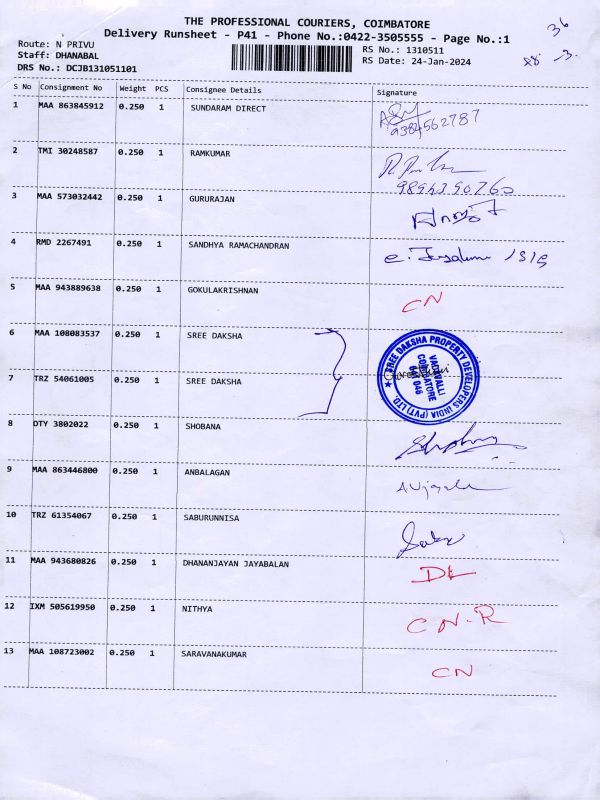 THE PROFESSIONAL COURIERS, COIMBATORE
Delivery Runsheet - P41 - Phone No.:0422-3505555 - Page No.:1
36
Route: N PRIVU
RS No.: 1310511
Staff: DHANABAL
RS Date: 24-Jan-2024
DRS No.: DCJB131051101
S No Consignment No Weight PCS Consignee Details Signature
1 MAA 863845912 0.250 1 SUNDARAM DIRECT
9384562787
2 TMI 30248587 0.250 1 RAMKUMAR
9894390760
3 MAA 573032442 0.250 1 GURURAJAN
4 RMD 2267491 0.250 1 SANDHYA RAMACHANDRAN
5 MAA 943889638 0.250 1 GOKULAKRISHNAN CN
6 MAA 108083537 0.250 1 SREE DAKSHA
SREE DAKSHA PROPERTY DEVELOPERS INDIA (PVT) LTD.
VADAVALLI
COIMBATORE
641 046
7 TRZ 54061005 0.250 1 SREE DAKSHA
8 DTY 3802022 0.250 1 SHOBANA
9 MAA 863446800 0.250 1 ANBALAGAN
10 TRZ 61354067 0.250 1 SABURUNNISA
11 MAA 943680826 0.250 1 DHANANJAYAN JAYABALAN DL
12 IXM 505619950 0.250 1 NITHYA CN-R
13 MAA 108723002 0.250 1 SARAVANAKUMAR CN